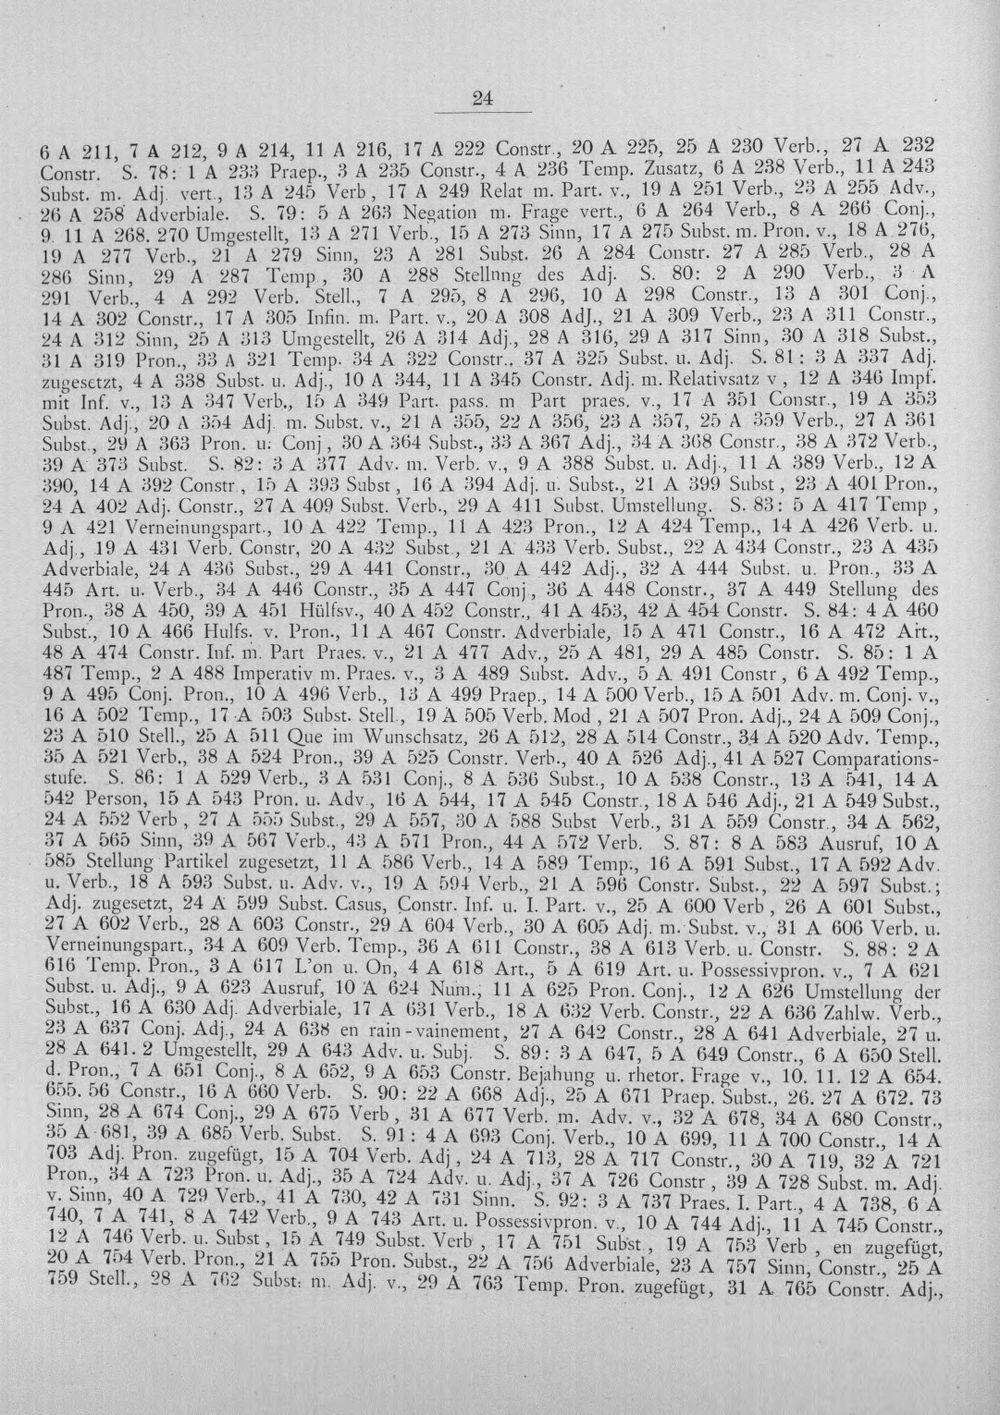 24
6 A 211, 7 A 212, 9 A 214, 11 A 216, 17 A 222 Constr., 20 A 225, 25 A 230 Verb., 27 A 232
Constr. S. 78: 1 A 233 Praep., 3 A 235 Constr., 4 A 236 Temp. Zusatz, 6 A 238 Verb., 11 A 243
Subst. m. Adj. vert., 13 A 245 Verb, 17 A 249 Relat m. Part. v., 19 A 251 Verb., 23 A 255 Adv.,
26 A 258 Adverbiale. S. 79: 5 A 263 Negation m. Frage vert., 6 A 264 Verb., 8 A 266 Conj.,
9. 11 A 268. 270 Umgestellt, 13 A 271 Verb., 15 A 273 Sinn, 17 A 275 Subst. m. Pron. v., 18 A 276,
19 A 277 Verb., 21 A 279 Sinn, 23 A 281 Subst. 26 A 284 Constr. 27 A 285 Verb., 28 A
286 Sinn, 29 A 287 Temp , 30 A 288 Stellnng des Adj. S. 80: 2 A 290 Verb., 3 A
291 Verb., 4 A 292 Verb. Stell., 7 A 295, 8 A 296, 10 A 298 Constr., 13 A 301 Conj.,
14 A 302 Constr., 17 A 305 Infin. m. Part. v., 20 A 308 Adj., 21 A 309 Verb., 23 A 311 Constr.,
24 A 312 Sinn, 25 A 313 Umgestellt, 26 A 314 Adj., 28 A 316, 29 A 317 Sinn, 30 A 318 Subst.,
31 A 319 Pron., 33 A 321 Temp. 34 A 322 Constr., 37 A 325 Subst. u. Adj. S. 81: 3 A 337 Adj.
zugesetzt, 4 A 338 Subst. u. Adj., 10 A 344, 11 A 345 Constr. Adj. m. Relativsatz v , 12 A 346 Impf.
mit Inf. v., 13 A 347 Verb., 15 A 349 Part. pass. m Part praes. v., 17 A 351 Constr., 19 A 353
Subst. Adj., 20 A 354 Adj. m. Subst. v., 21 A 355, 22 A 356, 23 A 357, 25 A 359 Verb., 27 A 361
Subst., 29 A 363 Pron. u. Conj , 30 A 364 Subst., 33 A 367 Adj., 34 A 368 Constr., 38 A 372 Verb.,
39 A 373 Subst. S. 82: 3 A 377 Adv. m. Verb. v., 9 A 388 Subst. u. Adj., 11 A 389 Verb., 12 A
390, 14 A 392 Constr , 15 A 393 Subst , 16 A 394 Adj. u. Subst., 21 A 399 Subst , 23 A 401 Pron.,
24 A 402 Adj. Constr., 27 A 409 Subst. Verb., 29 A 411 Subst. Umstellung. S. 83: 5 A 417 Temp ,
9 A 421 Verneinungspart., 10 A 422 Temp., 11 A 423 Pron., 12 A 424 Temp., 14 A 426 Verb. u.
Adj., 19 A 431 Verb. Constr, 20 A 432 Subst., 21 A 433 Verb. Subst., 22 A 434 Constr., 23 A 435
Adverbiale, 24 A 436 Subst., 29 A 441 Constr., 30 A 442 Adj., 32 A 444 Subst. u. Pron., 33 A
445 Art. u. Verb., 34 A 446 Constr., 35 A 447 Conj , 36 A 448 Constr., 37 A 449 Stellung des
Pron., 38 A 450, 39 A 451 Hülfsv., 40 A 452 Constr., 41 A 453, 42 A 454 Constr. S. 84: 4 A 460
Subst., 10 A 466 Hulfs. v. Pron., 11 A 467 Constr. Adverbiale, 15 A 471 Constr., 16 A 472 Art.,
48 A 474 Constr. Inf. m. Part Praes. v., 21 A 477 Adv., 25 A 481, 29 A 485 Constr. S. 85: 1 A
487 Temp., 2 A 488 Imperativ m. Praes. v., 3 A 489 Subst. Adv., 5 A 491 Constr , 6 A 492 Temp.,
9 A 495 Conj. Pron., 10 A 496 Verb., 13 A 499 Praep., 14 A 500 Verb., 15 A 501 Adv. m. Conj. v.,
16 A 502 Temp., 17 A 503 Subst. Stell., 19 A 505 Verb. Mod , 21 A 507 Pron. Adj., 24 A 509 Conj.,
23 A 510 Stell., 25 A 511 Que im Wunschsatz, 26 A 512, 28 A 514 Constr., 34 A 520 Adv. Temp.,
35 A 521 Verb., 38 A 524 Pron., 39 A 525 Constr. Verb., 40 A 526 Adj., 41 A 527 Comparations-
stufe. S. 86: 1 A 529 Verb., 3 A 531 Conj., 8 A 536 Subst., 10 A 538 Constr., 13 A 541, 14 A
542 Person, 15 A 543 Pron. u. Adv , 16 A 544, 17 A 545 Constr., 18 A 546 Adj., 21 A 549 Subst.,
24 A 552 Verb , 27 A 555 Subst., 29 A 557, 30 A 588 Subst Verb., 31 A 559 Constr., 34 A 562,
37 A 565 Sinn, 39 A 567 Verb., 43 A 571 Pron., 44 A 572 Verb. S. 87: 8 A 583 Ausruf, 10 A
585 Stellung Partikel zugesetzt, 11 A 586 Verb., 14 A 589 Temp., 16 A 591 Subst., 17 A 592 Adv.
u. Verb., 18 A 593 Subst. u. Adv. v., 19 A 594 Verb., 21 A 596 Constr. Subst., 22 A 597 Subst.;
Adj. zugesetzt, 24 A 599 Subst. Casus, Constr. Inf. u. I. Part. v., 25 A 600 Verb , 26 A 601 Subst.,
27 A 602 Verb., 28 A 603 Constr., 29 A 604 Verb., 30 A 605 Adj. m. Subst. v., 31 A 606 Verb. u.
Verneinungspart., 34 A 609 Verb. Temp., 36 A 611 Constr., 38 A 613 Verb. u. Constr. S. 88: 2 A
616 Temp. Pron., 3 A 617 L'on u. On, 4 A 618 Art., 5 A 619 Art. u. Possessivpron. v., 7 A 621
Subst. u. Adj., 9 A 623 Ausruf, 10 A 624 Num., 11 A 625 Pron. Conj., 12 A 626 Umstellung der
Subst., 16 A 630 Adj. Adverbiale, 17 A 631 Verb., 18 A 632 Verb. Constr., 22 A 636 Zahlw. Verb.,
23 A 637 Conj. Adj., 24 A 638 en rain-vainement, 27 A 642 Constr., 28 A 641 Adverbiale, 27 u.
28 A 641. 2 Umgestellt, 29 A 643 Adv. u. Subj. S. 89: 3 A 647, 5 A 649 Constr., 6 A 650 Stell.
d. Pron., 7 A 651 Conj., 8 A 652, 9 A 653 Constr. Bejahung u. rhetor. Frage v., 10. 11. 12 A 654.
655. 56 Constr., 16 A 660 Verb. S. 90: 22 A 668 Adj., 25 A 671 Praep. Subst., 26. 27 A 672. 73
Sinn, 28 A 674 Conj., 29 A 675 Verb , 31 A 677 Verb. m. Adv. v., 32 A 678, 34 A 680 Constr.,
35 A 681, 39 A 685 Verb. Subst. S. 91: 4 A 693 Conj. Verb., 10 A 699, 11 A 700 Constr., 14 A
703 Adj. Pron. zugefügt, 15 A 704 Verb. Adj , 24 A 713, 28 A 717 Constr., 30 A 719, 32 A 721
Pron., 34 A 723 Pron. u. Adj., 35 A 724 Adv. u. Adj., 37 A 726 Constr , 39 A 728 Subst. m. Adj.
v. Sinn, 40 A 729 Verb., 41 A 730, 42 A 731 Sinn. S. 92: 3 A 737 Praes. I. Part., 4 A 738, 6 A
740, 7 A 741, 8 A 742 Verb., 9 A 743 Art. u. Possessivpron. v., 10 A 744 Adj., 11 A 745 Constr.,
12 A 746 Verb. u. Subst , 15 A 749 Subst. Verb , 17 A 751 Subst., 19 A 753 Verb , en zugefügt,
20 A 754 Verb. Pron., 21 A 755 Pron. Subst., 22 A 756 Adverbiale, 23 A 757 Sinn, Constr., 25 A
759 Stell., 28 A 762 Subst. m. Adj. v., 29 A 763 Temp. Pron. zugefügt, 31 A 765 Constr. Adj.,